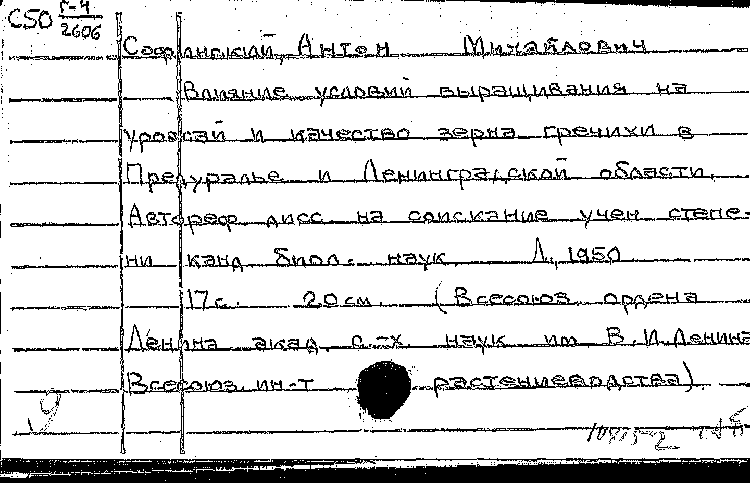 С50 Г-4
2606
Софинский, Антон Михайлович
Влияние условий выращивания на
урожай и качество зерна гречихи в
Предуралье и Ленинградской области.
Автореф дисс на соискание учен степе-
ни канд биол. наук Л, 1950
17 с. 20 см. (Всесоюз ордена
Ленина акад. с.-х. наук им В.И.Ленина
Всесоюз. ин-т растениеводства)
9